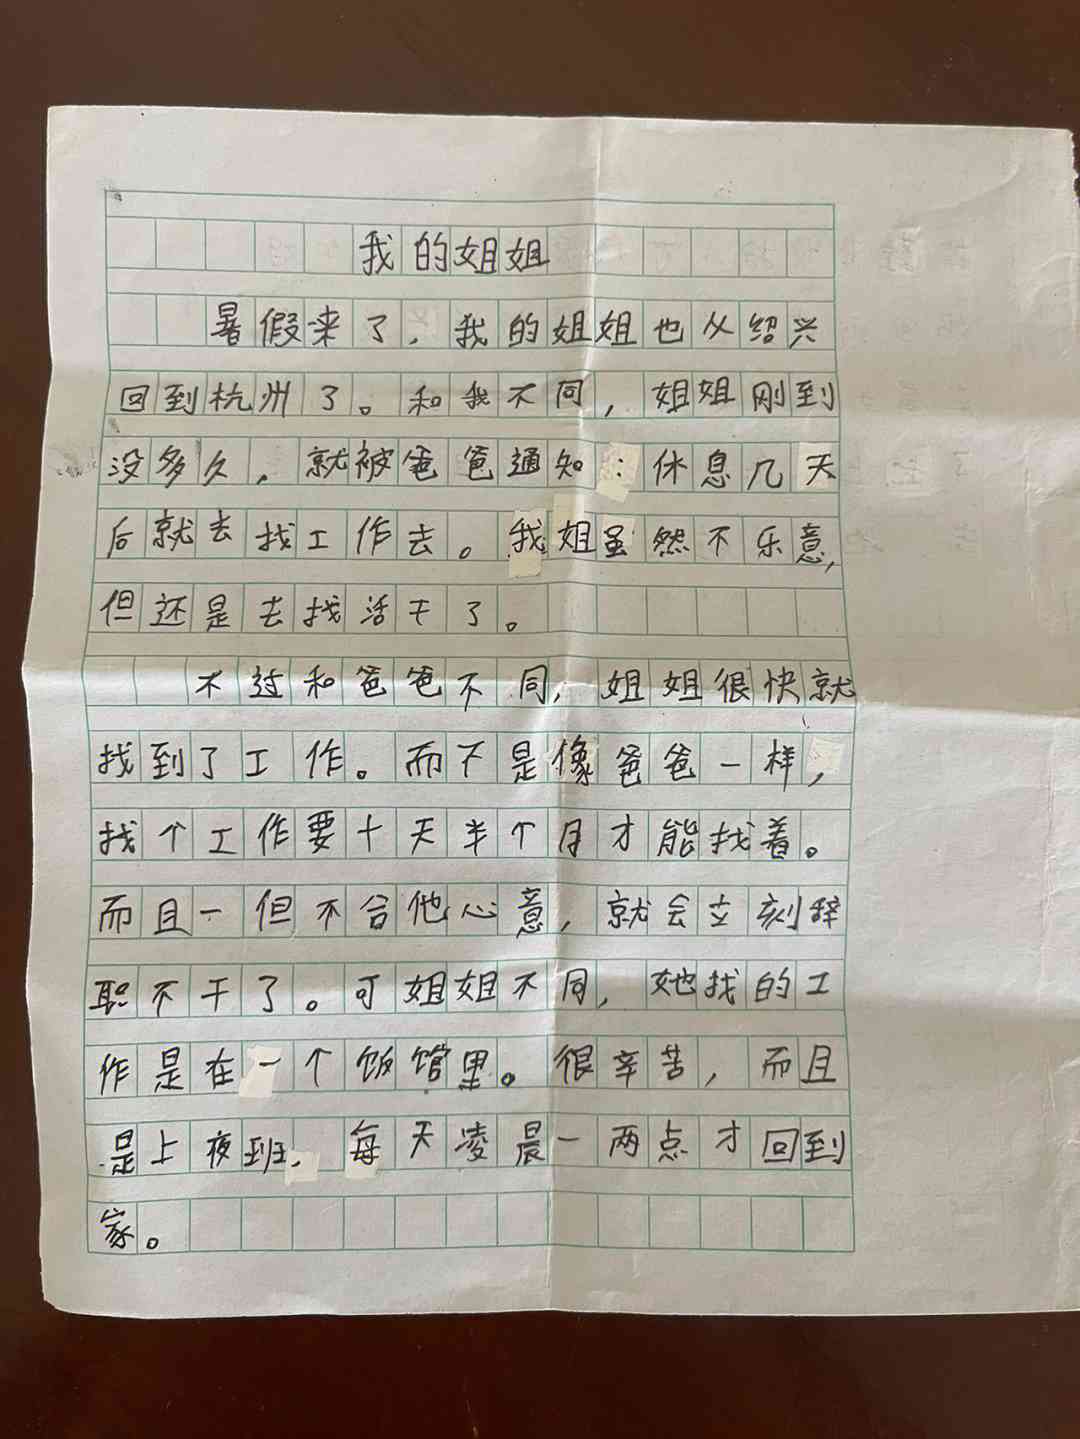 我的姐姐
暑假来了，我的姐姐也从绍兴
回到杭州了。和我不同，姐姐刚到
没多久，就被爸爸通知：休息几天
后就去找工作去。我姐虽然不乐意，
但还是去找活干了。
不过和爸爸不同，姐姐很快就
找到了工作。而不是像爸爸一样，
找个工作要十天半个月才能找着。
而且一但不合他心意，就会立刻辞
职不干了。可姐姐不同，她找的工
作是在一个饭馆里。很辛苦，而且
是上夜班，每天凌晨一两点才回到
家。